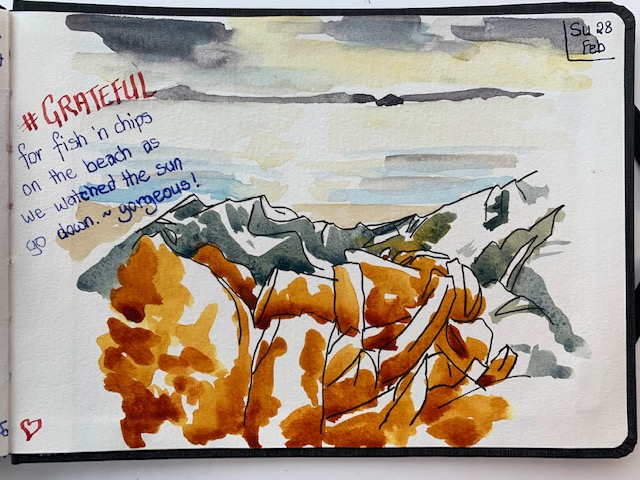 Su 28
Feb
#GRATEFUL
for fish 'n chips
on the beach as
we watched the sun
go down. ~ gorgeous!